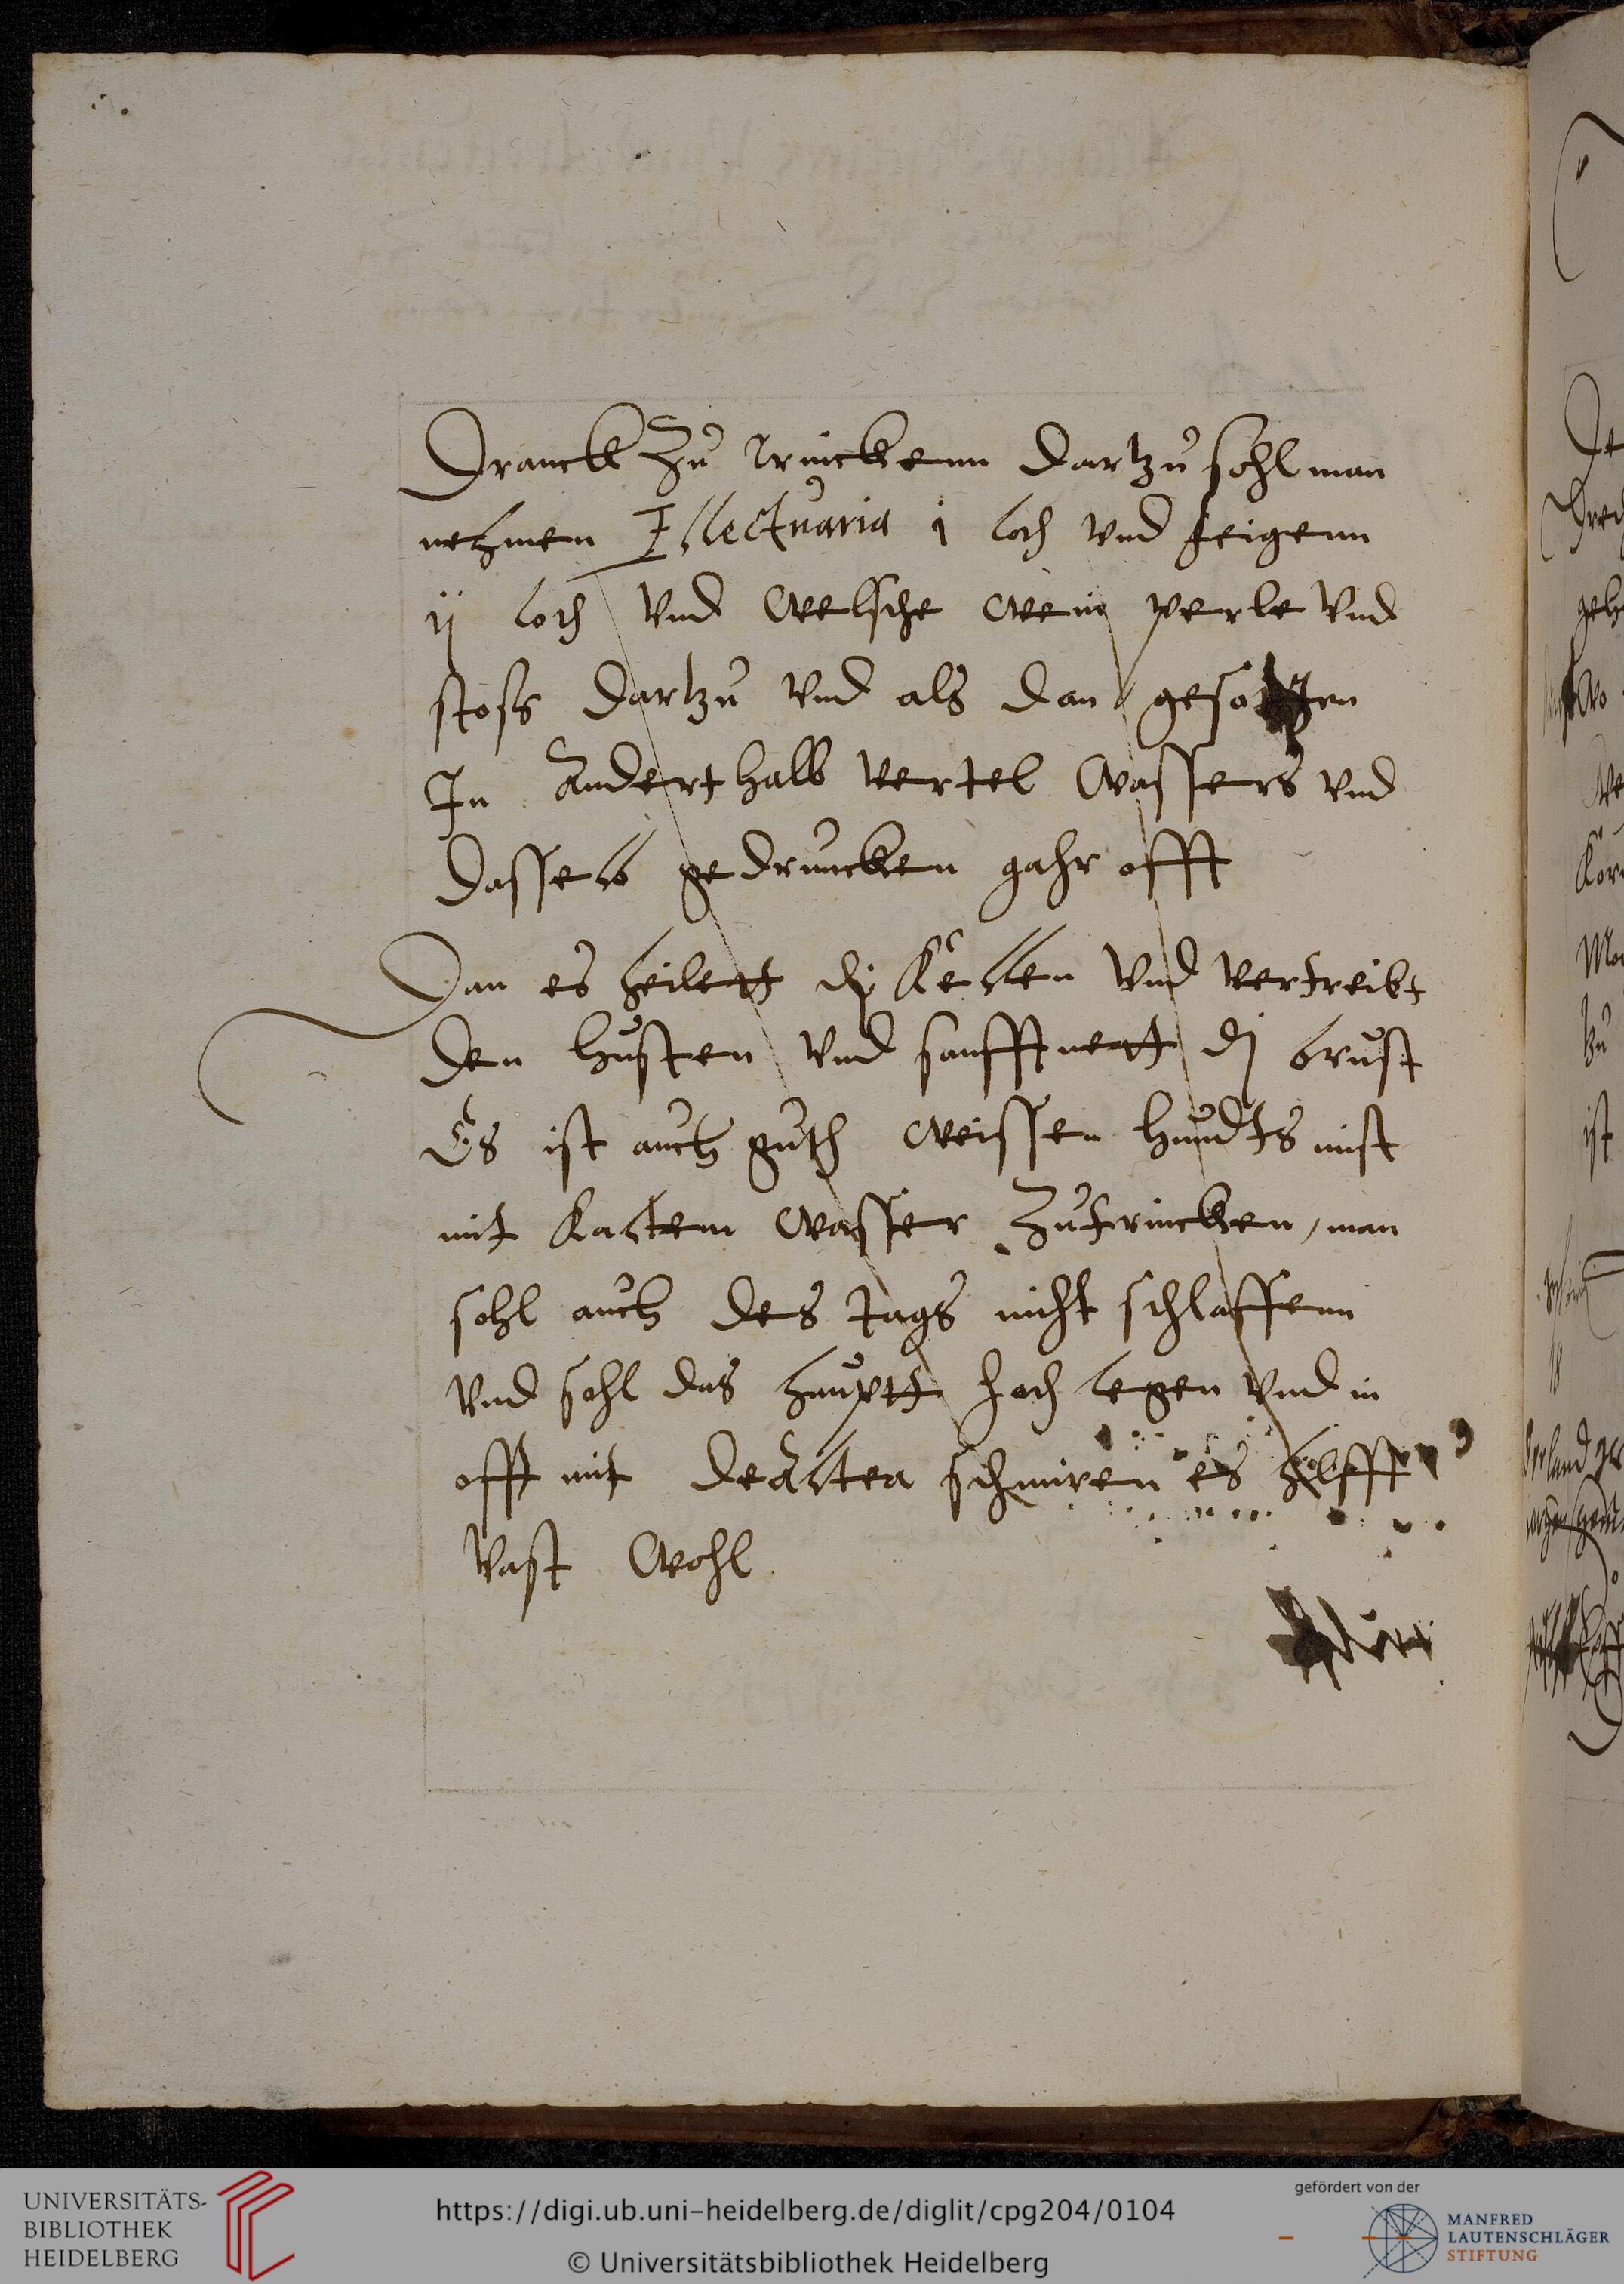 Dranck Zu trinckenn dartzu sohl man
nehmen Ellectuaria j loth vnd feigenn
ij loth vnd welsche wein perle vnd
stoss dartzu vnd als dan gesotten
In Anderthalb vertel wassers vnd
dasselb gedruncken gahr offt
Dan es heilett dy Kellen vnd vertreibt
den husten vnd sanfftnett dj brust
Es ist auch guth weissen hundts mist
mit kaltem wasser Zutrincken, man
sohl auch des tags nicht schlaffenn
vnd sohl das hauptt hoch legen vnd in
offt mit deAltea schmiren es hilfft
vast wohl
UNIVERSITÄTS-
BIBLIOTHEK
HEIDELBERG
https://digi.ub.uni-heidelberg.de/diglit/cpg204/0104
© Universitätsbibliothek Heidelberg
gefördert von der
MANFRED
LAUTENSCHLÄGER
STIFTUNG